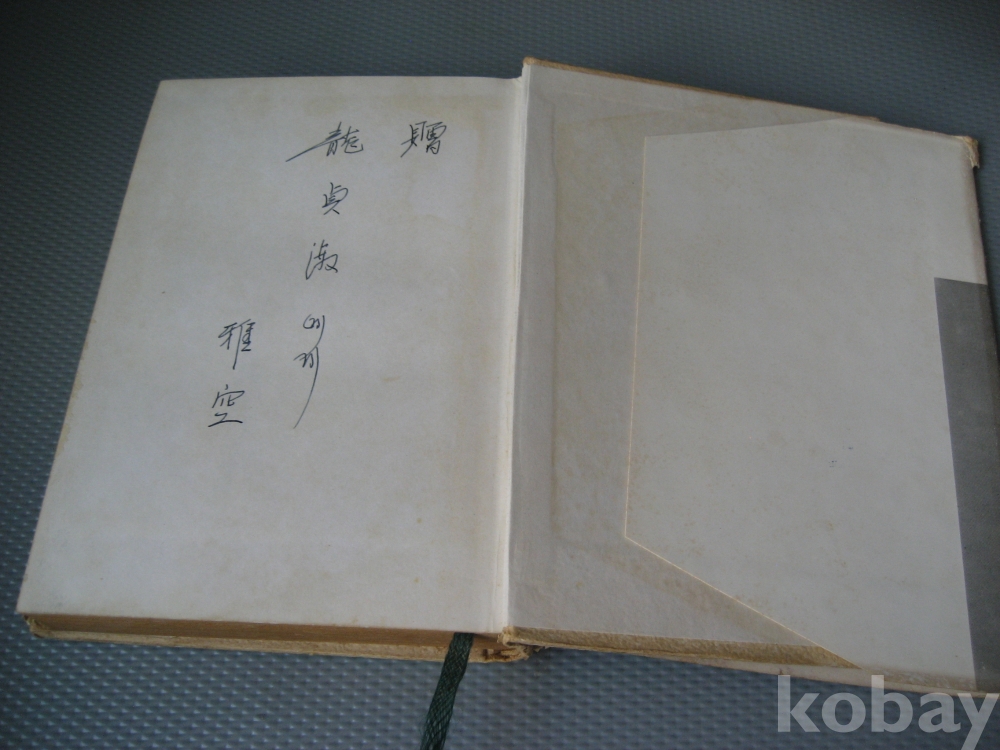 贈
龍貞淑에게
雅空
kobay